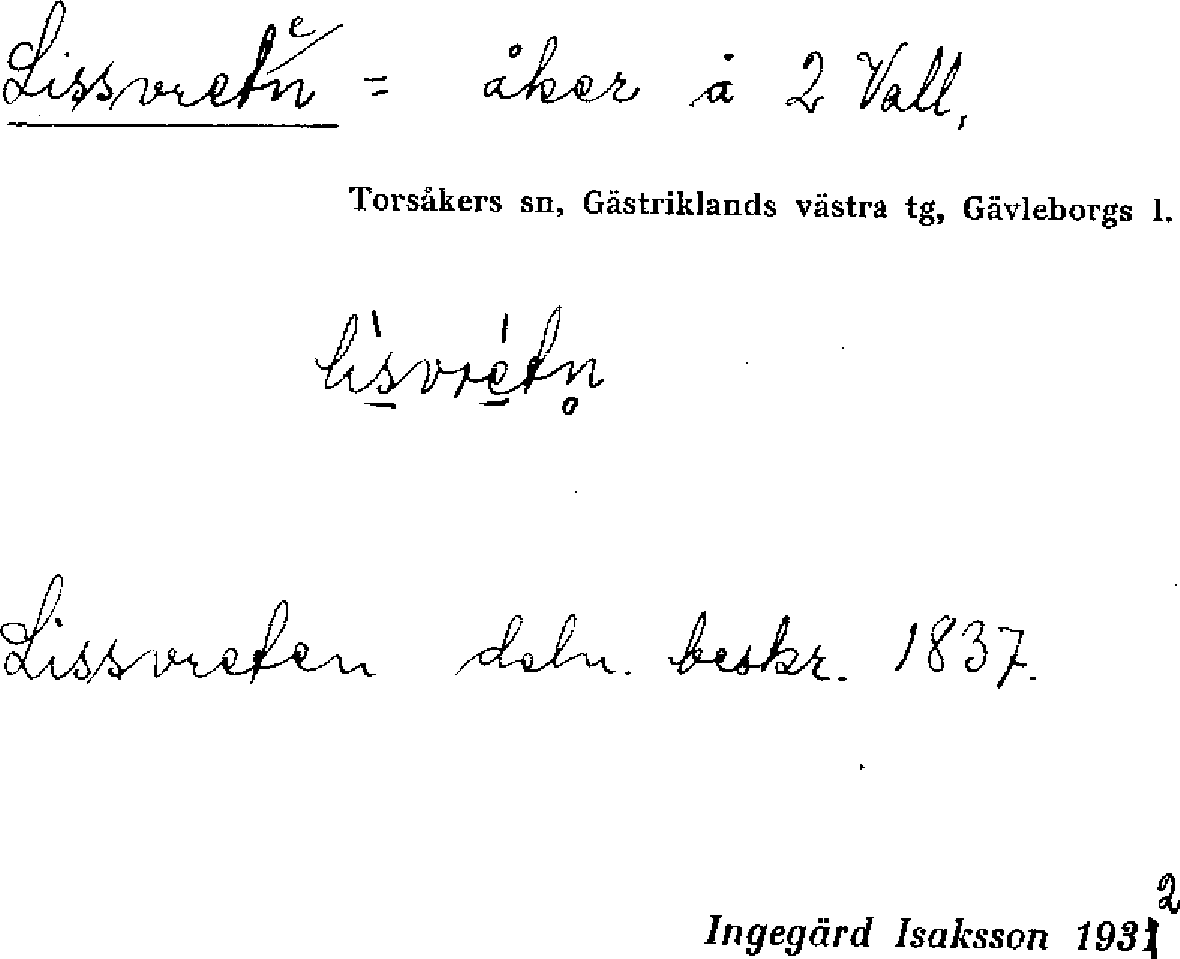 Lissvreten = åker å 2 Vall,
Torsåkers sn, Gästriklands västra tg, Gävleborgs l.
lisvretn̥
Lissvreten deln. beskr. 1837.
Ingegärd Isaksson 1932